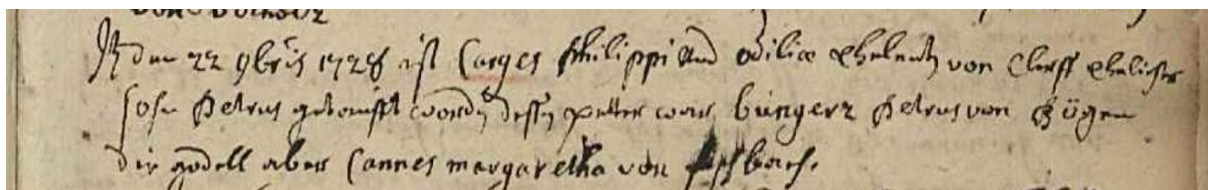 den 22 9bris 1728 ist Carges Philippi und Odiliæ Eheleuth von Clerff Ehelicher
sohn Petrus getaufft worden dessen petter war Büngerz Petrus von Bögen
die godell aber Cannes margaretha von